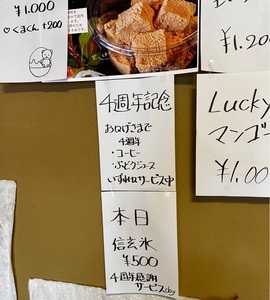 ¥1.000
♡くまくん +200
¥1.200
4週年記念
おひげさまで
4週年
・コーヒー
・ぶどうジュース
いずれかサービス中
Lucky
マンゴ
¥1.00
本日
信玄氷
¥500
4週年感謝
サービスday